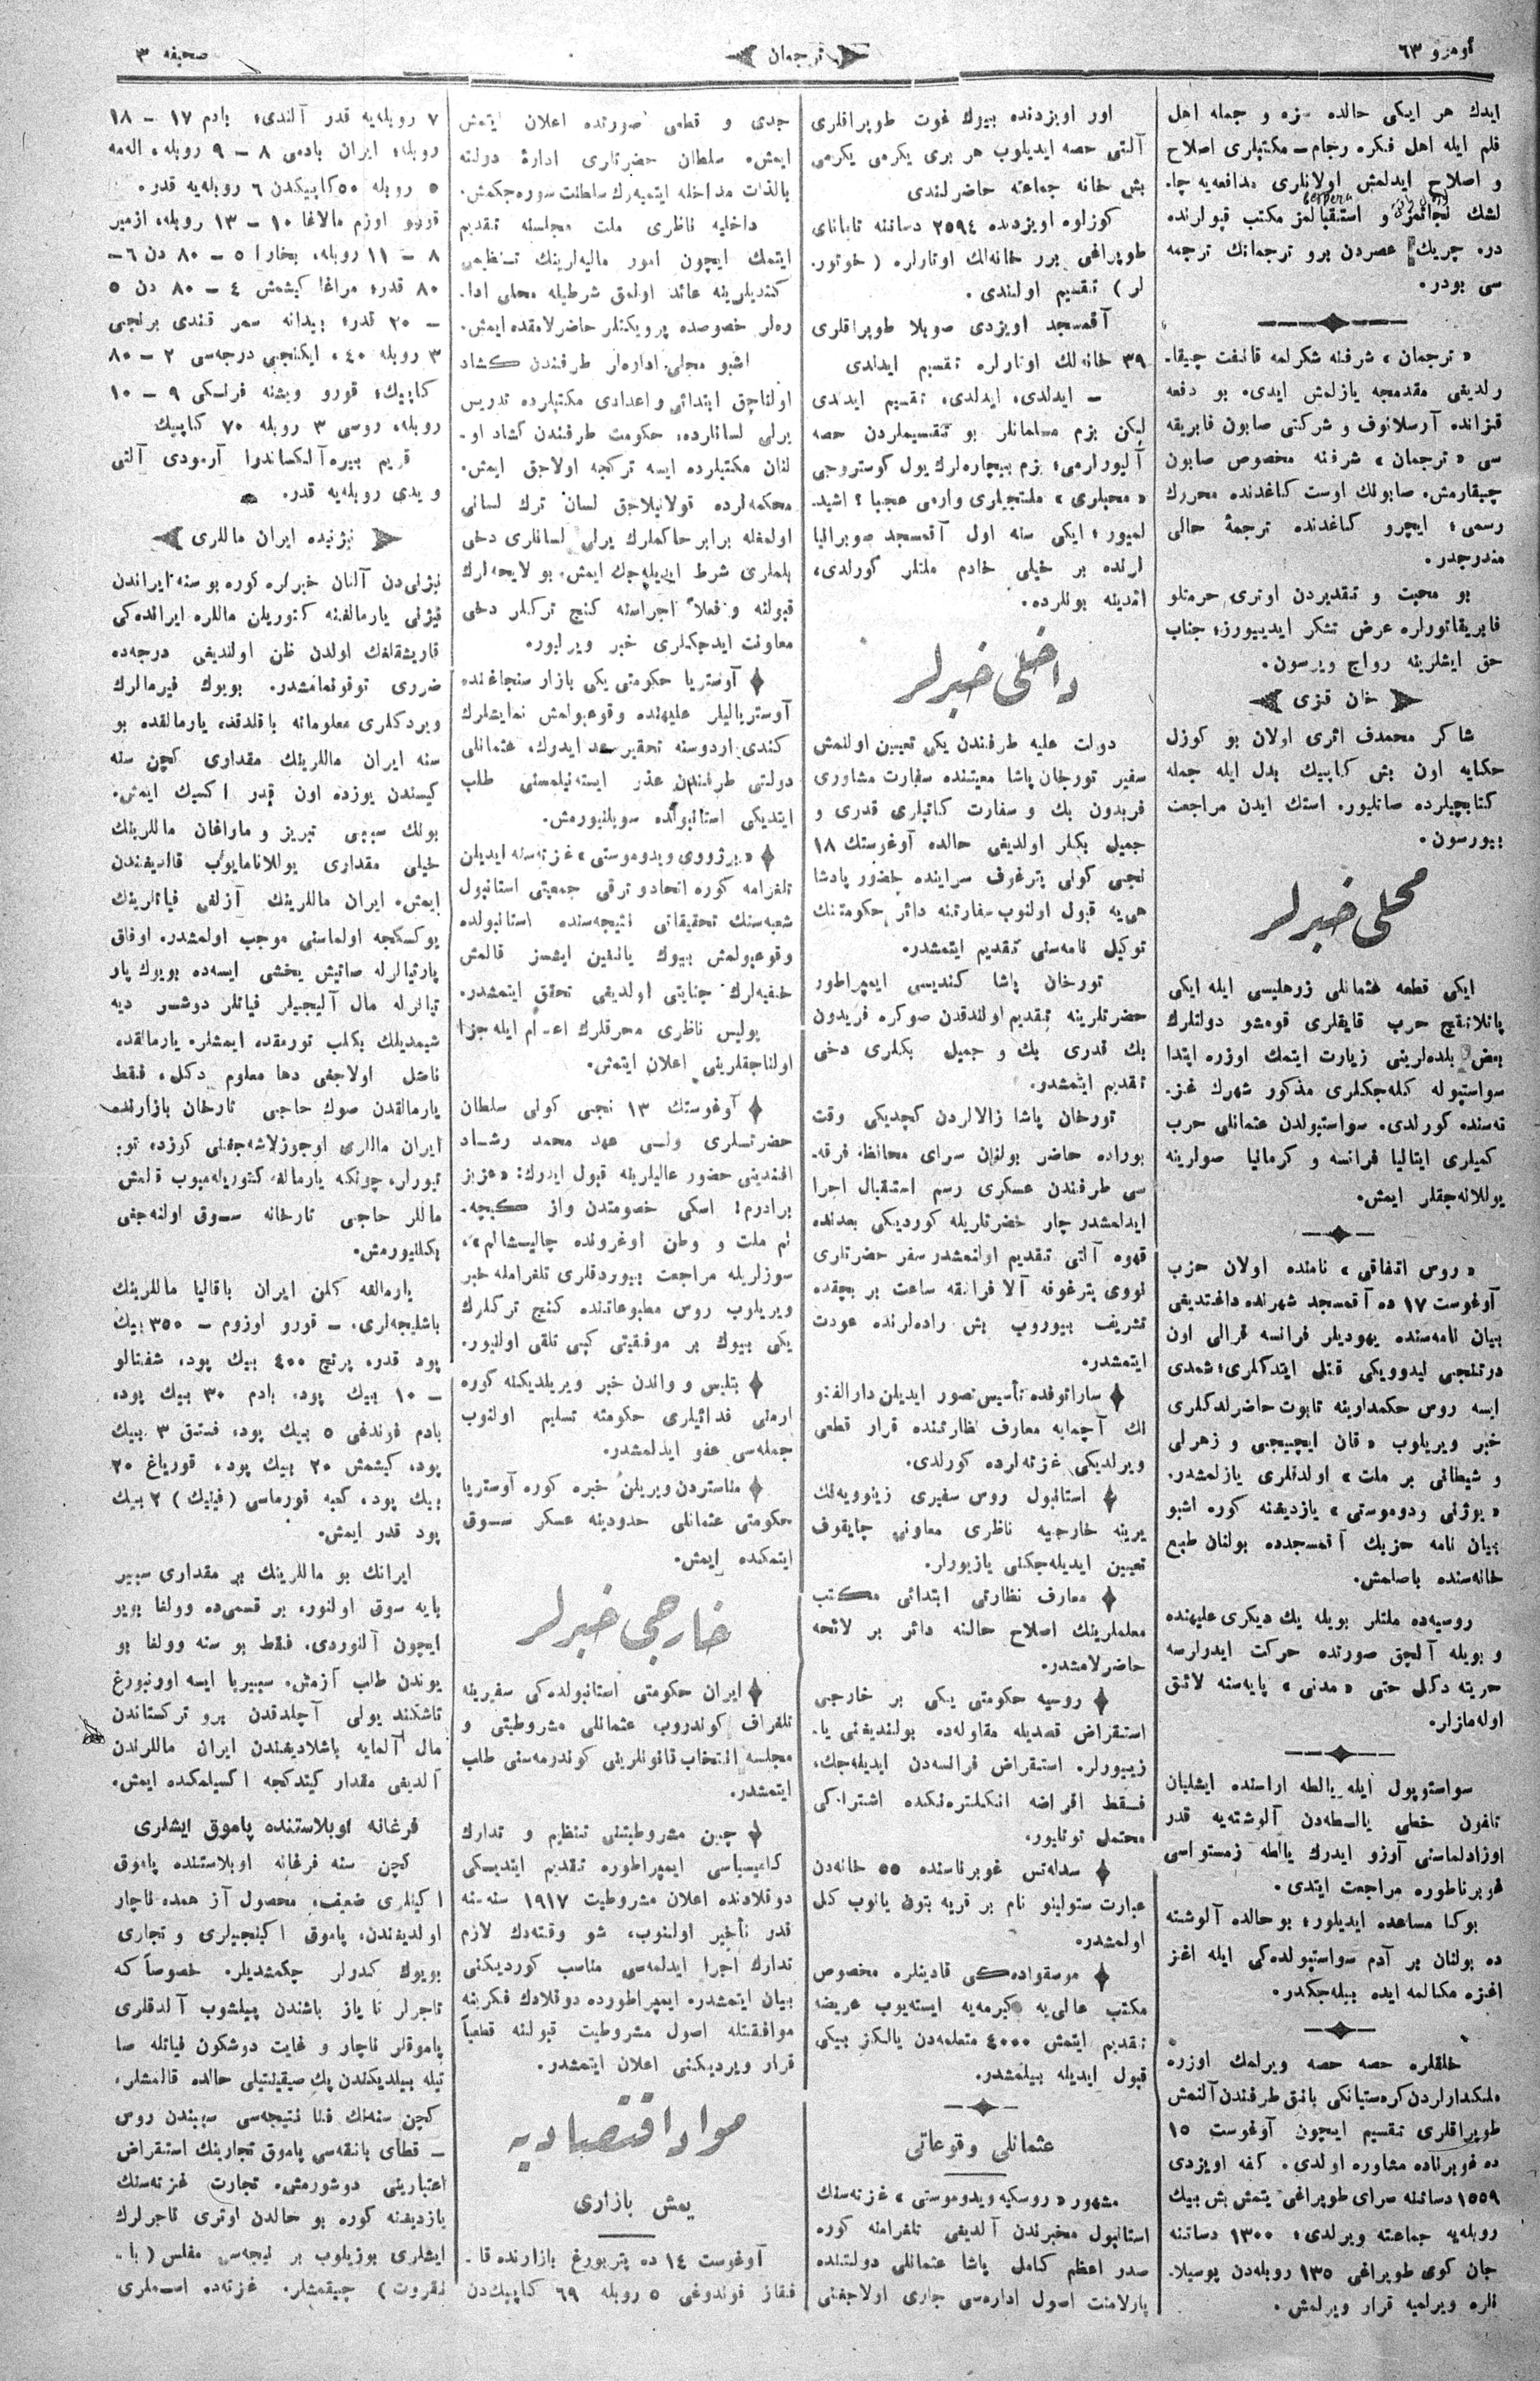 نومرو ٦٣
ترجمان
صحيفه ٣
ايدك هر ايكى حالده سزه و جمله اهل
قلم ايله اهل فكره رجام — مكتبلرى اصلاح
و اصلاح ايدلمش اولانلرى مدافعه‌يه چا-
لشك نجاتمز و استقبالمز مكتب قپولرنده
در. چريك عصردن برو ترجمانك ترجمه
سى بودر.
«ترجمان» شرفنه شكرلمه قانفت چيقا-
رلديغى مقدمجه يازلمش ايدى. بو دفعه
قزانده آرسلانوف و شركتى صابون فابريقه
سى «ترجمان» شرفنه مخصوص صابون
چيقارمش. صابونك اوست كاغدنده محررك
رسمى؛ ايچرو كاغدنده ترجمۀ حالى
مندرجدر.
بو محبت و تقديردن اوترى حرمتلو
فابريقاتورلره عرض تشكر ايدييورز؛ جناب
حق ايشلرينه رواج ويرسون.
خان قزى
شاكر محمدف اثرى اولان بو كوزل
حكايه اون بش كاپيك بدل ايله جمله
كتابچيلرده صاتليور. استك ايدن مراجعت
بيورسون.
محلى خبرلر
ايكى قطعه عثمانلى زرهليسى ايله ايكى
پاتلانقچ حرب قايقلرى قومشو دولتلرك
بعض بلده‌لرينى زيارت ايتمك اوزره ابتدا
سواستپوله كله‌جكلرى مذكور شهرك غز-
ته‌سنده كورلدى. سواستپولدن عثمانلى حرب
كميلرى ايتاليا فرانسه و كرمانيا صولرينه
يوللانه‌جقلر ايمش.
«روس اتفاقى» نامنده اولان حزب
آوغوست ١٧ ده آقمسجد شهرنده داغتديغى
بيان نامه‌سنده يهوديلر فرانسه قرالى اون
درتنجى ليدوويكى قتل ايتدكلرى؛ شمدى
ايسه روس حكمدارينه تابوت حاضرلدكلرى
خبر ويريلوب «قان ايچييجى و زهرلى
و شيطانى بر ملت» اولدقلرى يازلمشدر.
«يوژنى ودوموستى» يازديغنه كوره اشبو
بيان نامه حزبك آقمسجدده بولنان طبع
خانه‌سنده باصلمش.
روسيه‌ده ملتلر بويله يك ديكرى عليهنده
و بويله آلچق صورتده حركت ايدرلرسه
حريته دكل حتى «مدنى» پايه‌سنه لائق
اوله‌مازلر.
سواستوپول ايله يالطه اراسنده ايشليان
تلفون خطى يالطه‌دن آلوشته‌يه قدر
اوزادلماسنى آرزو ايدرك يالطه زمستواسى
غوبرناطوره مراجعت ايتدى.
بوكا مساعده ايديلور؛ بو حالده آلوشته
ده بولنان بر آدم سواستپولده‌كى ايله اغز
اغزه مكالمه ايده بيله‌جكدر.
خلقلره حصه حصه ويرلمك اوزره
ملكدارلردن كرستيانكى بانق طرفندن آلنمش
طوپراقلرى تقسيم ايچون آوغوست ١٥
ده غوبرناده مشاوره اولدى. كفه اويزدى
١٥٥٩ دساتنه سراى طوپراغى يتمش بش بيك
روبله‌يه جماعته ويرلدى؛ ١٣٠٠ دساتنه
جان كوى طوپراغى ١٣٥ روبله‌دن پوسيلا-
نلره ويرلميه قرار ويرلمش.
اور اويزدنده بيوك نموت طوپراقلرى
آلتى حصه ايديلوب هر برى يكرمى يكرمى
بش خانه جماعته حاضرلندى
كوزلوه اويزدنده ٢٥٩٤ دساتنه تاباناى
طوپراغى برر خانه‌لك اوتارلره (خوتور-
لر) تقسيم اولندى.
آقمسجد اويزدى صوبلا طوپراقلرى
٣٩ خانه‌لك اوتارلره تقسيم ايدلدى
— ايدلدى، ايدلدى، تقسيم ايدلدى
ليكن بزم مسلمانلر بو تقسيملردن حصه
آليورلرمى؛ بزم بيچاره‌لرك يول كوستروجى
«محبلرى» ملتجيلرى وارمى عجبا؟ اشيد-
لميور؛ ايكى سنه اول آقمسجد صوبرانيا
لرنده بر خيلى خادم ملتلر كورلدى،
افندينه يوللرده.
داخلى خبرلر
دولت عليه طرفندن يكى تعيين اولنمش
سفير تورخان پاشا معيتنده سفارت مشاورى
فريدون بك و سفارت كاتبلرى قدرى و
جميل بكلر اولديغى حالده آوغوستك ١٨
نجى كونى پترغوف سراينده حضور پادشا
هى‌يه قبول اولنوب سفارتنه دائر حكومتنك
توكيل نامه‌سنى تقديم ايتمشدر.
تورخان پاشا كنديسى ايمپراطور
حضرتلرينه تقديم اولندقدن صوكره فريدون
بك قدرى بك و جميل بكلرى دخى
تقديم ايتمشدر.
تورخان پاشا زالالردن كچديكى وقت
بوراده حاضر بولنان سراى محافظه فرقه-
سى طرفندن عسكرى رسم استقبال اجرا
ايدلمشدر چار حضرتلريله كورديكى بعدنده
قهوه آلتى تقديم اولنمشدر سفر حضرتلرى
نووى پترغوفه آلا فرانقه ساعت بر بچقده
تشريف بيوروب بش راده‌لرنده عودت
ايتمشدر.
ساراتوفده تأسيس تصور ايديلن دارالفنو
نك آچمايه معارف نظارتنده قرار قطعى
ويرلديكى غزته‌لرده كورلدى.
استانبول روس سفيرى زينوويه‌نك
يرينه خارجيه ناظرى معاونى چايقوف
تعيين ايديله‌جكنى يازيورلر.
معارف نظارتى ابتدائى مكتب
معلملرينك اصلاح حالنه دائر بر لائحه
حاضرلامشدر.
روسيه حكومتى يكى بر خارجى
استقراض قصديله مقاوله‌ده بولنديغنى يا-
زييورلر. استقراض فرانسه‌دن ايديله‌جك،
فقط اقراضه انكلتره‌نكده اشتراكى
محتمل توتليور.
سدله‌تس غوبرناسنده ٥٥ خانه‌دن
عبارت ستولينو نام بر قريه بتون يانوب كل
اولمشدر.
موسقواده‌كى قادينلره مخصوص
مكتب عالى‌يه كيرمه‌يه ايسته‌يوب عريضه
تقديم ايتمش ٤٠٠٠ متعلمه‌دن يالكز بيكى
قبول ايديله بيلمشدر.
عثمانلى وقوعاتى
مشهور «روسكيه ويدوموستى» غزته‌سنك
استانبول مخبرندن آلديغى تلغرافنه كوره
صدر اعظم كامل پاشا عثمانلى دولتنده
پارلامنت اصول اداره‌سى جارى اولاجغنى
جدى و قطعى صورتده اعلان ايتمش
ايمش. سلطان حضرتلرى ادارۀ دولته
بالذات مداخله ايتميه‌رك سلطنت سوره‌جكمش.
داخليه ناظرى ملت مجلسنه تقديم
ايتمك ايچون امور ماليه‌لرينك تنظيمى
كنديلرينه عائد اولمق شرطيله محلى ادا-
ره‌لر خصوصده پرويكتلر حاضرلامقده ايمش.
اشبو محلى اداره‌لر طرفندن كشاد
اولناچق ابتدائى و اعدادى مكتبلرده تدريس
يرلى لسانلرده، حكومت طرفندن كشاد او-
لنان مكتبلرده ايسه تركجه اولاجق ايمش.
محكمه‌لرده قوللانيلاجق لسان ترك لسانى
اولمغله برابر حاكملرك يرلى لسانلرى دخى
بلملرى شرط ايديله‌جك ايمش. بو لايحه‌لرك
قبولنه و فعلاً اجراسنه كنج تركلر دخى
معاونت ايدجكلرى خبر ويرليور.
آوستريا حكومتى يكى بازار سنجاغنده
آوسترياليلر عليهنده وقوعبولمش نمايشلرك
كندى اردوسنه تحقير عد ايدرك، عثمانلى
دولتى طرفندن عذر ايسته‌نيلمسنى طلب
ايتديكى استانبولده سويلنيورمش.
«بيرژووى ويدوموستى» غزته‌سنه ايديلن
تلغرامه كوره اتحاد و ترقى جمعيتى استانبول
شعبه‌سنك تحقيقاتى نتيجه‌سنده استانبولده
وقوعبولمش بيوك يانغين ايشسز قالمش
خفيه‌لرك جنايتى اولديغى تحقق ايتمشدر.
پوليس ناظرى محرقلرك اعدام ايله جزا
اولناجقلرينى اعلان ايتمش.
آوغوستك ١٣ نجى كونى سلطان
حضرتلرى ولى عهد محمد رشاد
افندينى حضور عاليلرينه قبول ايدرك: «عزيز
برادرم! اسكى خصومتدن واز كچه-
لم ملت و وطن اوغرونده چاليشالم»،
سوزلريله مراجعت بيوردقلرى تلغرافله خبر
ويريلوب روس مطبوعاتنده كنج تركلرك
يكى بيوك بر موفقيتى كبى تلقى اولنيور.
بتليس و واندن خبر ويريلديكنه كوره
ارمنى فدائيلرى حكومته تسليم اولنوب
جمله‌سى عفو ايدلمشدر.
مناستردن ويريلن خبره كوره آوستريا
حكومتى عثمانلى حدودينه عسكر سوق
ايتمكده ايمش.
خارجى خبرلر
ايران حكومتى استانبولده‌كى سفيرينه
تلغراف كوندروب عثمانلى مشروطيتى و
مجلسه انتخاب قانونلرينى كوندرمه‌سنى طلب
ايتمشدر.
چين مشروطيتنى تنظيم و تدارك
كاميسياسى ايمپراطوره تقديم ايتديكى
دوقلادنده اعلان مشروطيت ١٩١٧ سنه‌سنه
قدر تأخير اولنوب، شو وقته‌دك لازم
تدارك اجرا ايدلمه‌سى مناسب كورديكنى
بيان ايتمشدر. ايمپراطورده دوقلادك فكرينه
موافقتله اصول مشروطيت قبولنه قطعياً
قرار ويرديكنى اعلان ايتمشدر.
مواد اقتصاديه
يمش بازارى
آوغوست ١٤ ده پتربورغ بازارنده قا-
فقاز فوندوغى ٥ روبله ٦٩ كاپيك‌دن
٧ روبله‌يه قدر آلندى؛ بادم ١٧ — ١٨
روبله؛ ايران بادمى ٨ — ٩ روبله، المه
٥ روبله ٥٠ كاپيكدن ٦ روبله‌يه قدر.
قورو اوزم مالاغا ١٠ — ١٣ روبله، ازمير
٨ — ١١ روبله، بخارا ٥ — ٨٠ دن ٦ —
٨٠ قدر؛ مراغا كيشمش ٤ — ٨٠ دن ٥
— ٢٠ قدر؛ بيدانه سمرقندى برنجى
٣ روبله ٤٠، ايكنجى درجه‌سى ٢ — ٨٠
كاپيك؛ قورو ويشنه فرنسكى ٩ — ١٠
روبله، روسى ٣ روبله ٧٠ كاپيك
قريم بيره آلكساندرا آرمودى آلتى
و يدى روبله‌يه قدر.
نيژنيده ايران ماللرى
نيژنى‌دن آلنان خبرلره كوره بو سنه ايراندن
نيژنى يارمالقنه كتوريلن ماللره ايرانده‌كى
قاريشقلغك اولدن ظن اولنديغى درجه‌ده
ضررى توقونمامشدر. بويوك فيرمالرك
ويردكلرى معلوماته باقلدقده يارمالقده بو
سنه ايران ماللرينك مقدارى كچن سنه
كيسندن يوزده اون قدر اكسيك ايمش.
بونك سببى تبريز و ماراغان ماللرينك
خيلى مقدارى يوللانامايوب قالديغندن
ايمش. ايران ماللرينك آزلغى فياتلرينك
يوكسكجه اولماسنى موجب اولمشدر. اوفاق
پارتيالرله صاتيش يخشى ايسه‌ده بويوك پار
تيالرله مال آليجيلر فياتلر دوشر ديه
شيمديلك بكلب تورمقده ايمشلر. يارمالقده
ناصل اولاجغى دها معلوم دكل، فقط
يارمالقدن صوك حاجى تارخان بازارنده
ايران ماللرى اوجوزلاشه‌جغنى كوزده تو-
تيورلر، چونكه يارمالقه كتوريله‌ميوب قلمش
ماللر حاجى تارخانه سوق اولنه‌جغى
بكلنيورمش.
يارمالقه كلن ايران باقاليا ماللرينك
باشليجه‌لرى. — قورو اوزوم — ٣٥٠ بيك
پود قدر، برنج ٤٠٠ بيك پود، شفتالو
— ١٠ بيك پود، بادم ٣٠ بيك پود،
بادم فوندغى ٥ بيك پود، فستق ٣ بيك
پود، كيشمش ٢٠ بيك پود، قورياغ ٢٠
بيك پود، كعبه خورماسى (فينيك) ٢ بيك
پود قدر ايمش.
ايرانك بو ماللرينك بر مقدارى سيبير
يايه سوق اولنور، بر قسمى‌ده وولغا بويو
ايچون آلنوردى. فقط بو سنه وولغا بو
يوندن طلب آزمش. سيبيريا ايسه اورنبورغ
تاشكند يولى آچلدقدن برو تركستاندن
مال آلمايه باشلاديغندن ايران ماللرندن
آلديغى مقدار كيتدكجه اكسيلمكده ايمش.
فرغانه اوبلاستنده پاموق ايشلرى
كچن سنه فرغانه اوبلاستنده پاموق
اكينلرى ضعيف، محصول آز همده ناچار
اولديغندن، پاموق اكينجيلرى و تجارى
بويوك كدرلر چكمشديلر. خصوصاً كه
تاجرلر تا ياز باشندن پيلشوب آلدقلرى
پاموقلر ناچار و غايت دوشكون فياتله صا
تيله بيلديكندن پك صيقينتيلى حالده قالمشلر.
كچن سنه‌نك فنا نتيجه‌سى سببندن روس
— قطاى بانقه‌سى پاموق تجارينك استقراض
اعتبارينى دوشورمش. تجارت غزته‌سنك
يازديغنه كوره بو حالدن اوترى تاجرلرك
ايشلرى بوزيلوب بر نيجه‌سى مفلس (با-
نقروت) چيقمشلر. غزته‌ده اسملرى